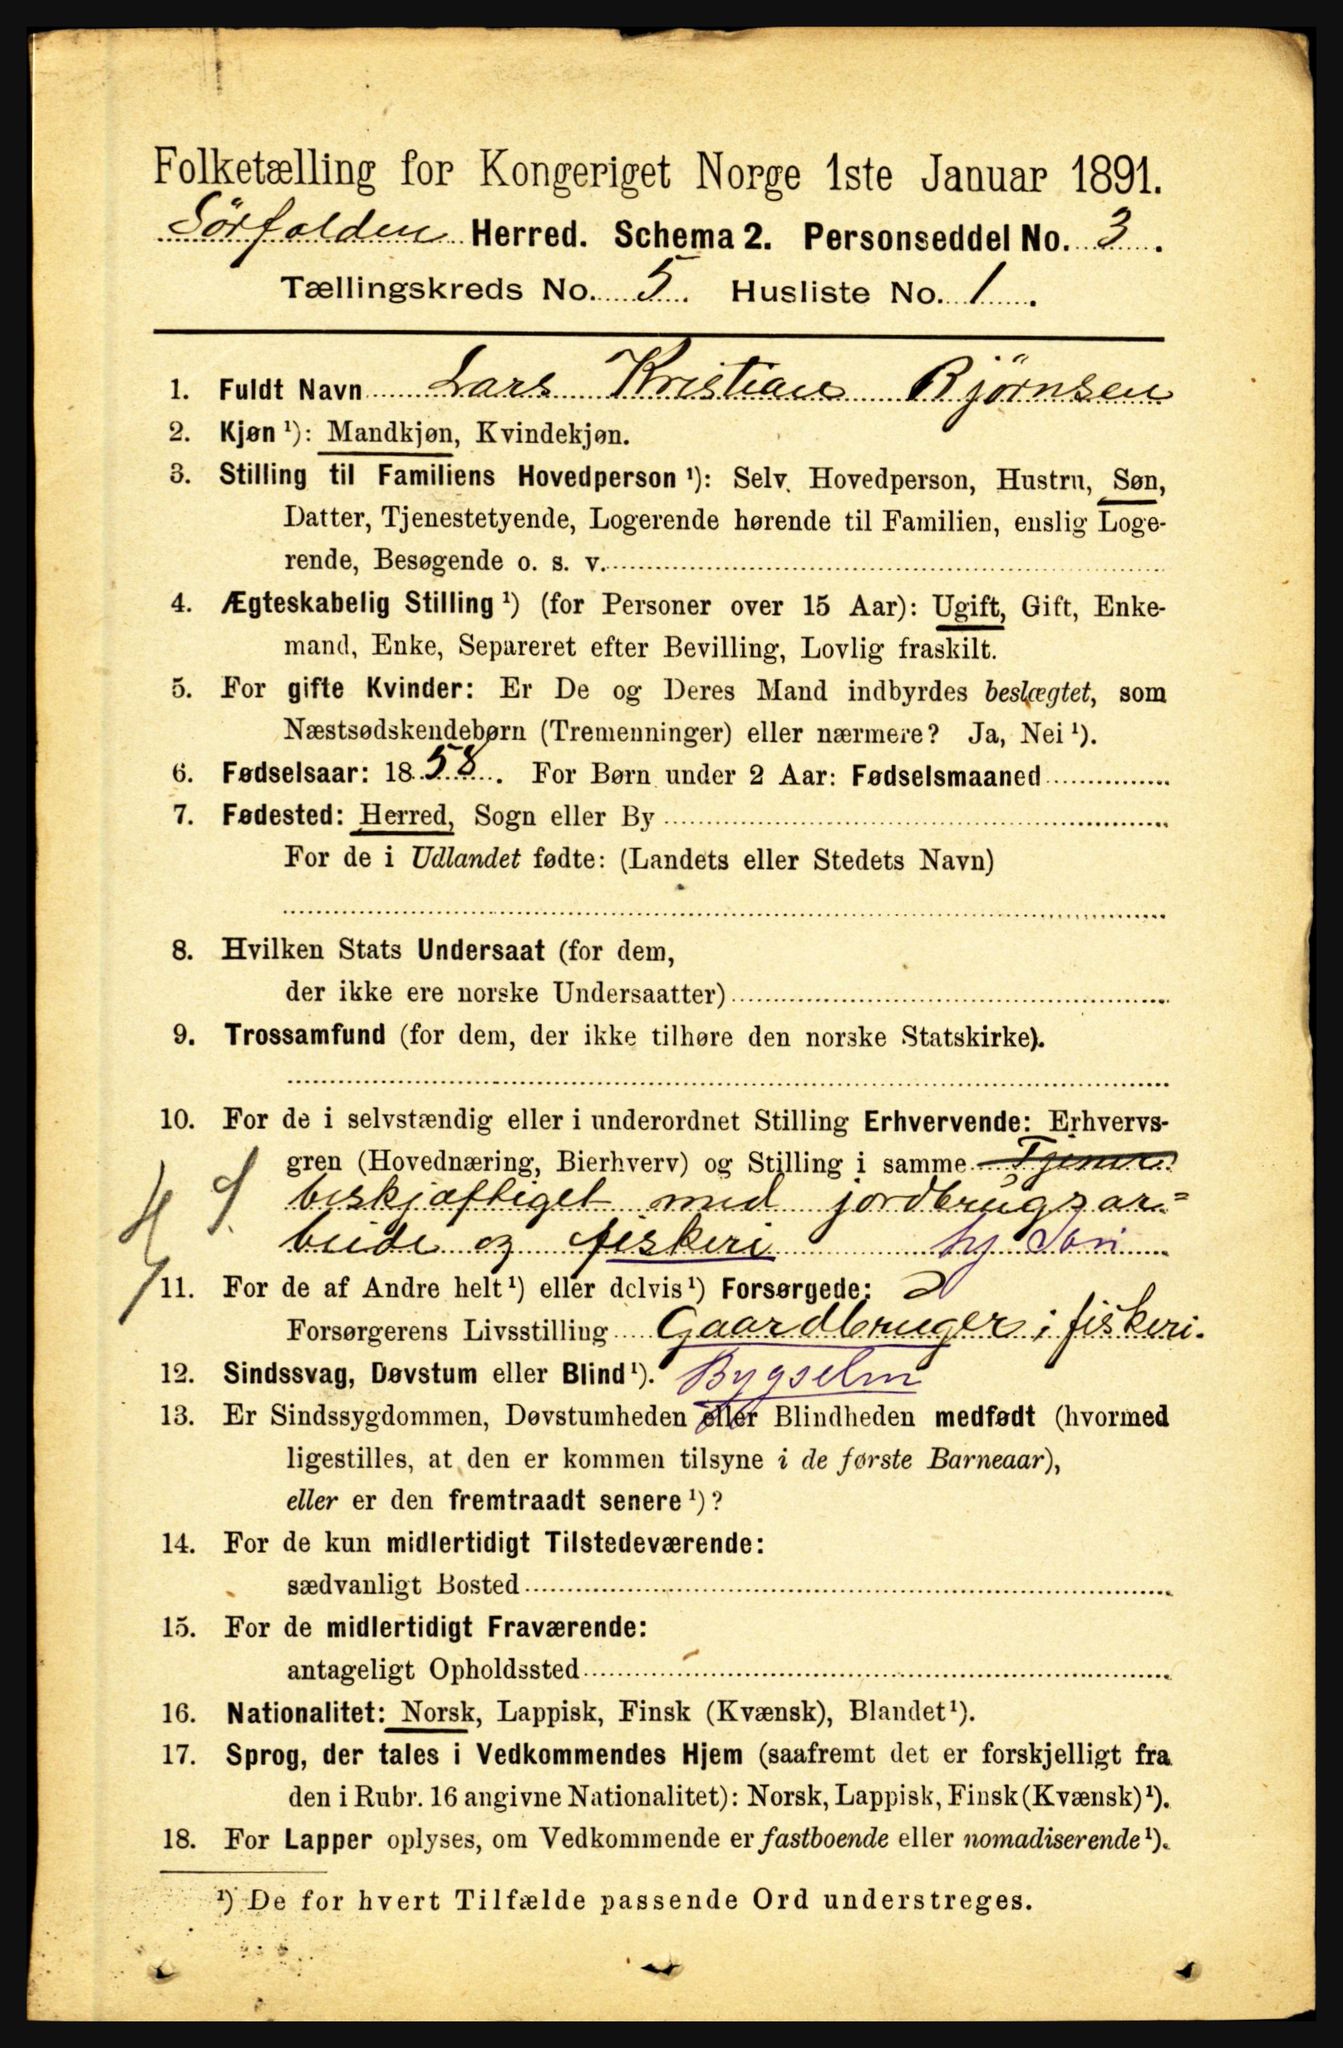 Folketælling for Kongeriget Norge 1ste Januar 1891.
Sörfolden Herred. Schema 2. Personseddel No. 3.
Tællingskreds No. 5. Husliste No. 1.
1. Fuldt Navn Lars Kristian Bjørnsen
2. Kjøn ¹): Mandkjøn, Kvindekjøn.
3. Stilling til Familiens Hovedperson ¹): Selv Hovedperson, Hustru, Søn,
Datter, Tjenestetyende, Logerende hørende til Familien, enslig Loge-
rende, Besøgende o. s. v.
4. Ægteskabelig Stilling ¹) (for Personer over 15 Aar): Ugift, Gift, Enke-
mand, Enke, Separeret efter Bevilling, Lovlig fraskilt.
5. For gifte Kvinder: Er De og Deres Mand indbyrdes beslægtet, som
Næstsødskendebørn (Tremenninger) eller nærmere? Ja, Nei ¹).
6. Fødselsaar: 1858. For Børn under 2 Aar: Fødselsmaaned
7. Fødested: Herred, Sogn eller By
For de i Udlandet fødte: (Landets eller Stedets Navn)
8. Hvilken Stats Undersaat (for dem,
der ikke ere norske Undersaatter)
9. Trossamfund (for dem, der ikke tilhøre den norske Statskirke).
10. For de i selvstændig eller i underordnet Stilling Erhvervende: Erhvervs-
gren (Hovednæring, Bierhverv) og Stilling i samme
beskjæftiget med jordbrugsar=
beide og fiskeri hj Søn
11. For de af Andre helt ¹) eller delvis ¹) Forsørgede:
Forsørgerens Livsstilling Gaardbruger i fiskeri.
12. Sindssvag, Døvstum eller Blind ¹). Bygselm
13. Er Sindssygdommen, Døvstumheden eller Blindheden medfødt (hvormed
ligestilles, at den er kommen tilsyne i de første Barneaar),
eller er den fremtraadt senere ¹)?
14. For de kun midlertidigt Tilstedeværende:
sædvanligt Bosted
15. For de midlertidigt Fraværende:
antageligt Opholdssted
16. Nationalitet: Norsk, Lappisk, Finsk (Kvænsk), Blandet ¹).
17. Sprog, der tales i Vedkommendes Hjem (saafremt det er forskjelligt fra
den i Rubr. 16 angivne Nationalitet): Norsk, Lappisk, Finsk (Kvænsk) ¹).
18. For Lapper oplyses, om Vedkommende er fastboende eller nomadiserende ¹).
¹) De for hvert Tilfælde passende Ord understreges.